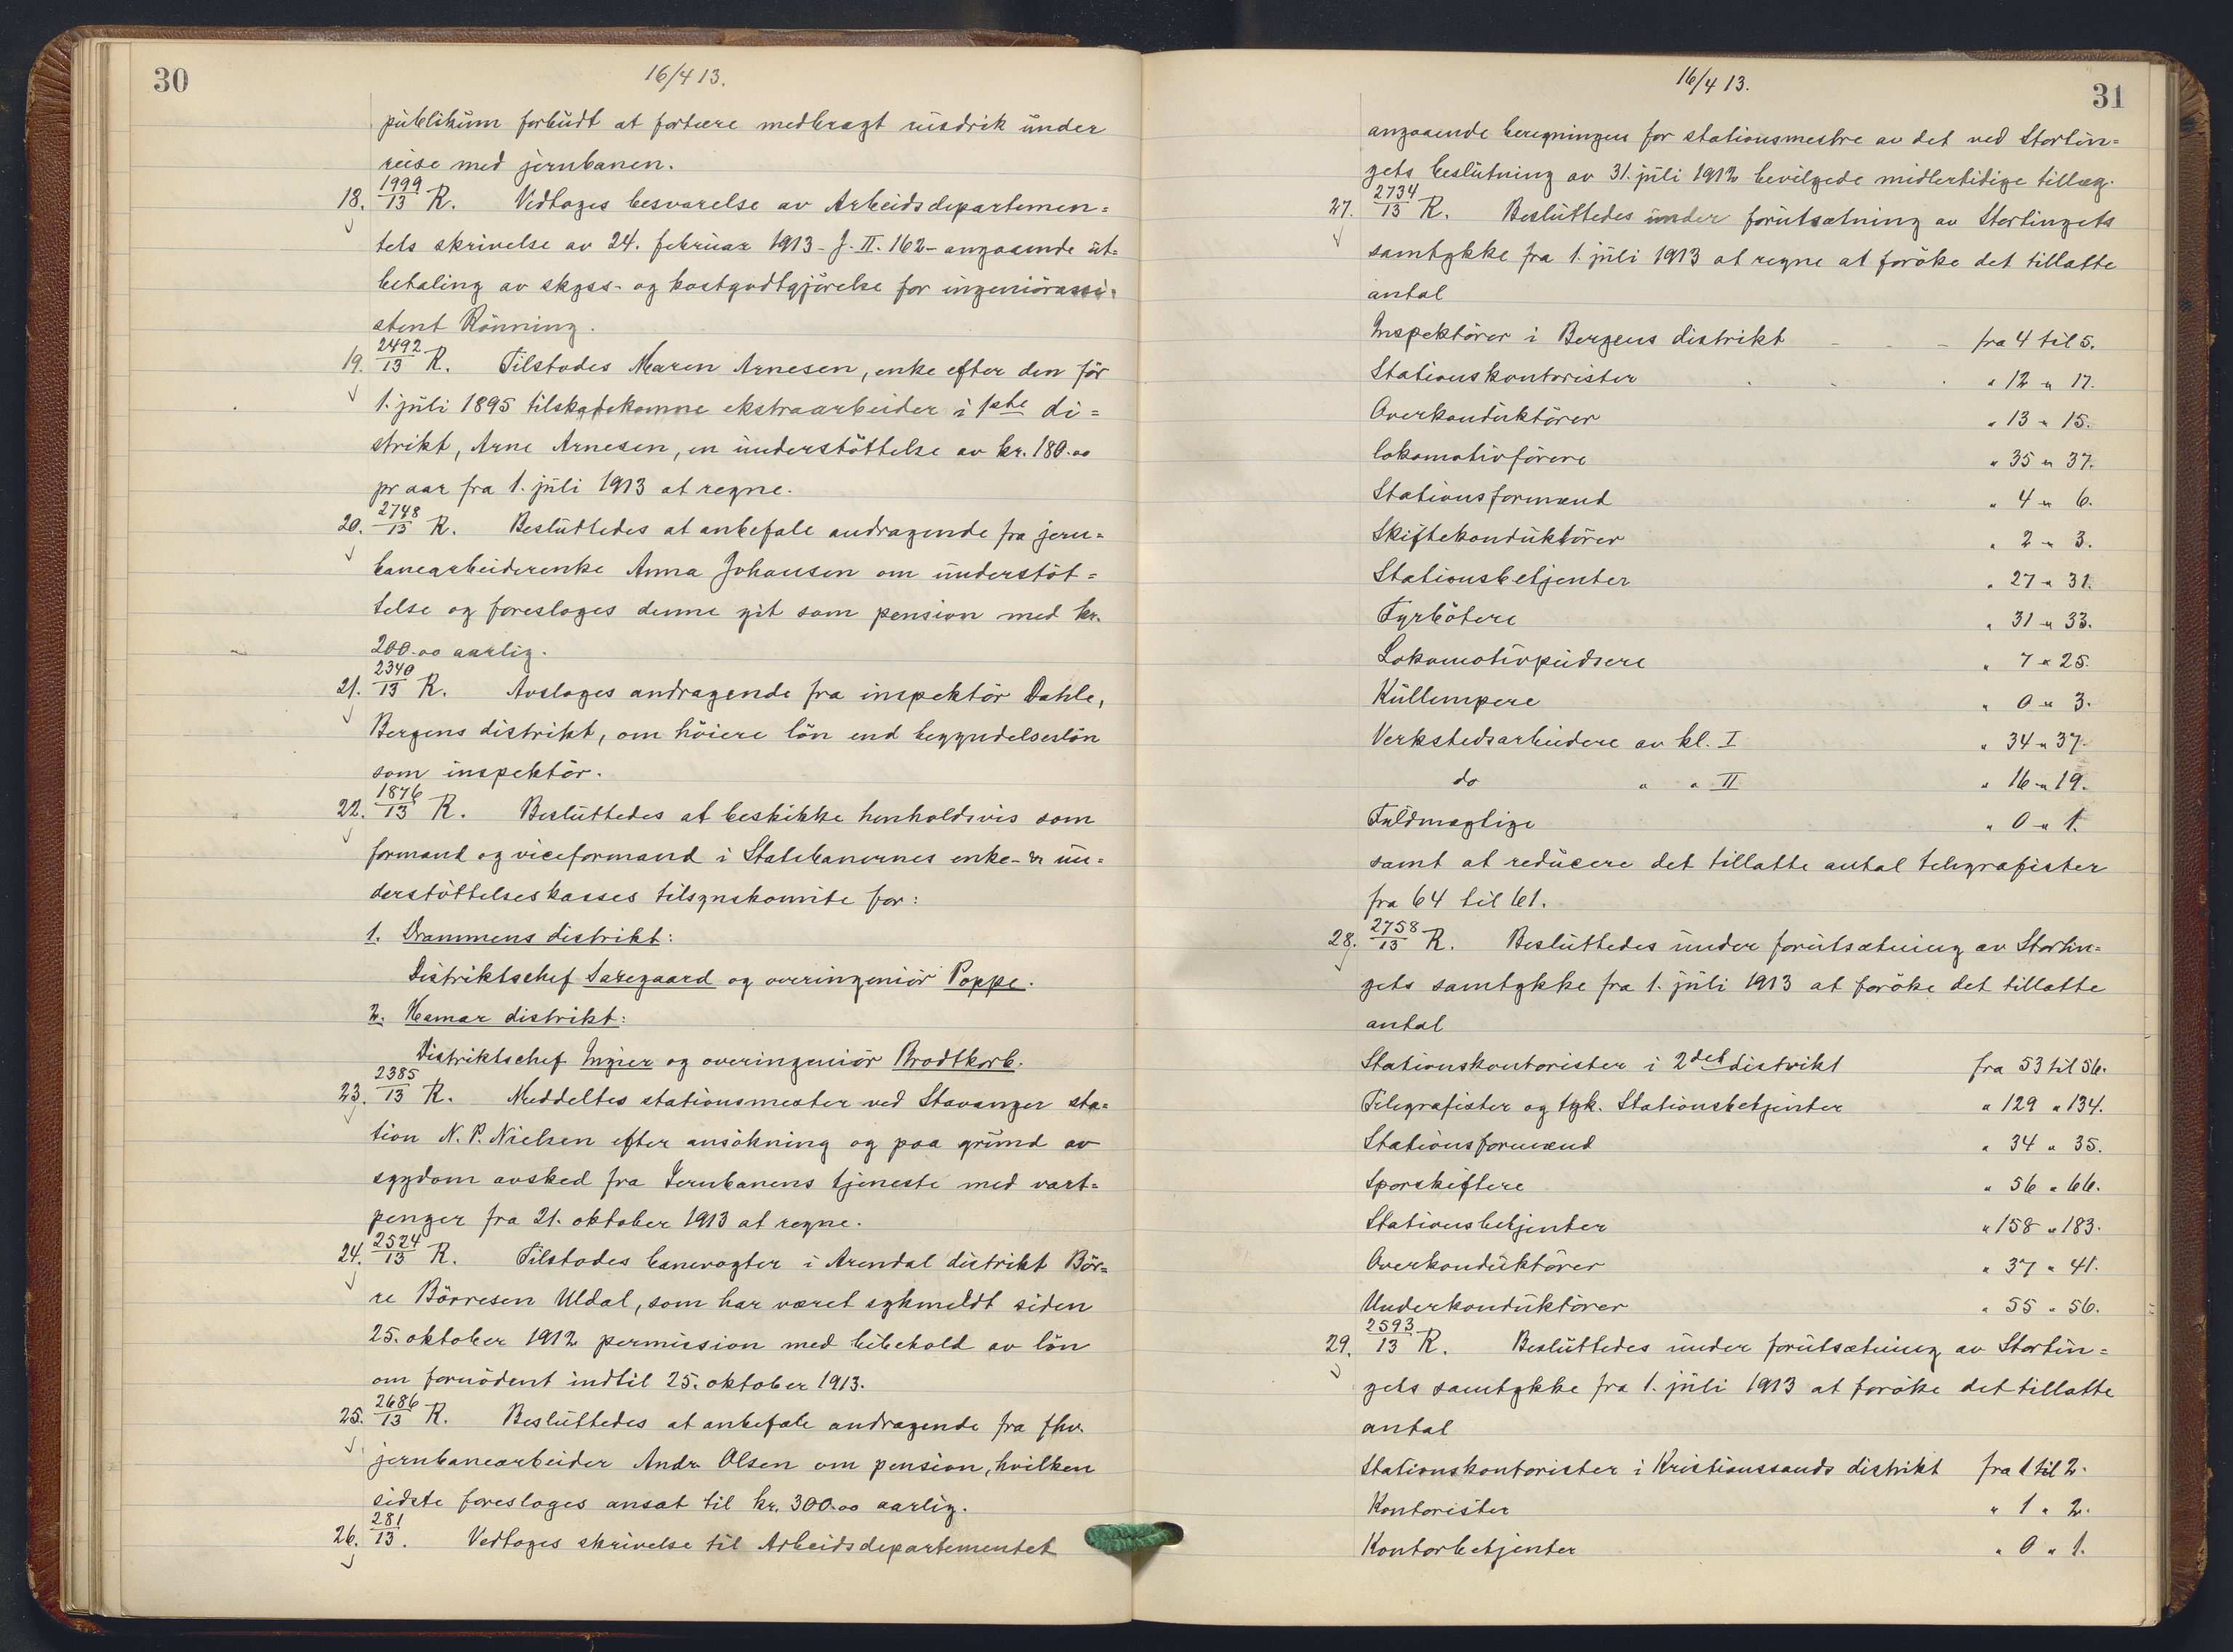 30
16/4 13.
publikum forbudt at fortære medbragt rusdrik under
reise med jernbanen.
18. 1999/13 R. Vedtoges besvarelse av Arbeidsdepartemen=
tets skrivelse av 24. februar 1913 - J. II. 162 - angaaende ut=
betaling av skyss- og kostgodtgjörelse for ingeniörassi=
stent Rönning.
19. 2492/13 R. Tilstodes Maren Arnesen, enke efter den för
1. juli 1895 tilskadekomne ekstraarbeider i 1ste di=
strikt, Arne Arnesen, en understöttelse av kr. 180.00
pr aar fra 1. juli 1913 at regne.
20. 2748/13 R. Besluttedes at anbefale andragende fra jern=
banearbeiderenke Anna Johansen om understöt=
telse og foresloges denne git som pension med kr.
200.00 aarlig.
21. 2340/13 R. Avsloges andragende fra inspektör Dahle,
Bergens distrikt, om höiere lön end begyndelseslön
som inspektör.
22. 1876/13 R. Besluttedes at beskikke henholdsvis som
formand og viceformand i Statsbanernes enke- & un=
derstöttelseskasses tilsynskomite for:
1. Drammens distrikt:
Distriktschef Saxegaard og overingeniör Poppe.
2. Hamar distrikt:
Distriktschef Ingier og overingeniör Brodtkorb.
23. 2385/13 R. Meddeltes stationsmester ved Stavanger sta=
tion N. P. Nielsen efter ansökning og paa grund av
sygdom avsked fra Jernbanens tjeneste med vart=
penger fra 21. oktober 1913 at regne.
24. 2524/13 R. Tilstodes banevogter i Arendal distrikt Bör=
re Börresen Uldal, som har været sykmeldt siden
25. oktober 1912 permission med bibehold av lön
om fornödent indtil 25. oktober 1913.
25. 2686/13 R. Besluttedes at anbefale andragende fra fhv.
jernbanearbeider Andr Olsen om pension, hvilken
sidste foresloges ansat til kr. 300.00 aarlig.
26. 281/13. Vedtoges skrivelse til Arbeidsdepartementet
16/4 13.
31
angaaende beregningen for stationsmestre av det ved Stortin=
gets beslutning av 31. juli 1912 bevilgede midlertidige tillæg.
27. 2734/13 R. Besluttedes under forutsætning av Stortingets
samtykke fra 1. juli 1913 at regne at foröke det tillatte
antal
Inspektörer i Bergens distrikt - - fra 4 til 5.
Stationskontorister " 12 " 17.
Overkonduktörer " 13 " 15.
Lokomotivförere " 35 " 37.
Stationsformænd " 4 " 6.
Skiftekonduktörer " 2 " 3.
Stationsbetjenter " 27 " 31.
Fyrbötere " 31 " 33.
Lokomotivpudsere " 7 " 25.
Kullempere " 0 " 3.
Verkstedsarbeidere av kl. I " 34 " 37.
do " " II " 16 " 19.
Fuldmægtige " 0 " 1.
samt at reducere det tillatte antal telegrafister
fra 64 til 61.
28. 2758/13 R. Besluttedes under forutsætning av Stortin=
gets samtykke fra 1. juli 1913 at foröke det tillatte
antal
Stationskontorister i 2det distrikt fra 53 til 56.
Telegrafister og tgk. Stationsbetjenter " 129 " 134.
Stationsformænd " 34 " 35.
Sporskiftere " 56 " 66.
Stationsbetjenter " 158 " 183.
Overkonduktörer " 37 " 41.
Underkonduktörer " 55 " 56.
29. 2593/13 R. Besluttedes under forutsætning av Stortin=
gets samtykke fra 1. juli 1913 at foröke det tillatte
antal
Stationskontorister i Kristianssands distrikt fra 1 til 2.
Kontorister " 1 " 2.
Kontorbetjenter " 0 " 1.